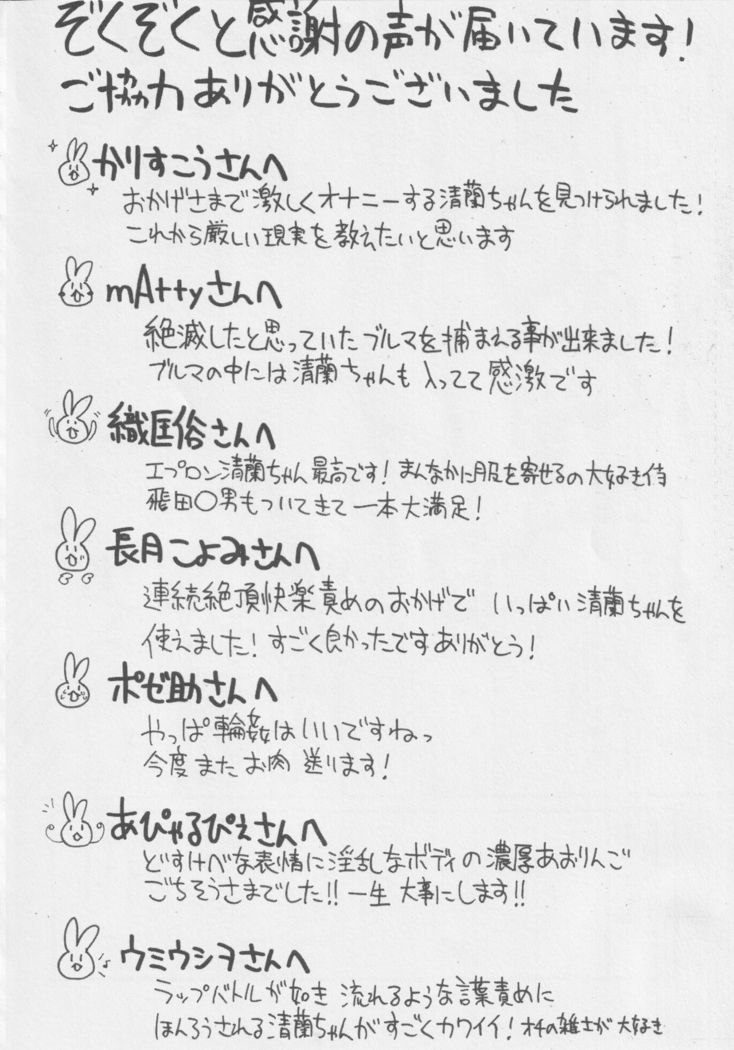 ぞくぞくと感謝の声が届いています!
ご協力ありがとうございました
かりすこうさんへ
おかげさまで激しくオナニーする清蘭ちゃんを見つけられました!
これから厳しい現実を教えたいと思います
mAttyさんへ
絶滅したと思っていたブルマを捕まえる事が出来ました!
ブルマの中には清蘭ちゃんも入ってて感激です
織匡俗さんへ
エプロン清蘭ちゃん最高です!まんなかに服を寄せるの大好き侍
飛田〇男もついてきて一本大満足!
長月こよみさんへ
連続絶頂快楽責めのおかげで いっぱい清蘭ちゃんを
使えました!すごく良かったですありがとう!
ポゼ助さんへ
やっぱ輪姦はいいですねっ
今度またお肉送ります!
あぴゃるぴえさんへ
どすけべな表情に淫乱なボディの濃厚あおりんご
ごちそうさまでした!!一生大事にします!!
ウミウシヲさんへ
ラップバトルが如き流れるような言葉責めに
ほんろうされる清蘭ちゃんがすごくカワイイ!オチの雑さが大好き